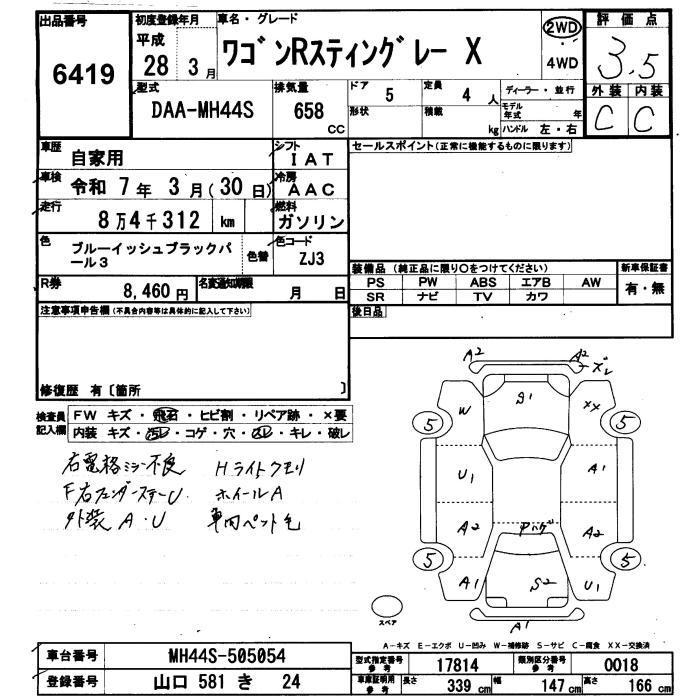 出品番号 初度登録年月 車名・グレード 評価点
6419 平成 28 3月 ワゴンRスティングレー X 2WD 4WD 3.5
型式 排気量 ドア 定員 ディーラー・並行 外装 内装
DAA-MH44S 658 CC 5 4人 モデル年式 年 C C
形状 積載 kg ハンドル 左・右
車歴 自家用 シフト IAT セールスポイント(正常に機能するものに限ります)
車検 令和 7年 3月(30日) 冷房 AAC
走行 8万4千312 km 燃料 ガソリン
色 ブルーイッシュブラックパール3 色替 色コード ZJ3
装備品 (純正品に限り○をつけてください) 新車保証書
PS PW ABS エアB AW 有・無
SR ナビ TV カワ
R券 8,460円 名変通知期限 月 日
後日品
注意事項申告欄(不具合内容等は具体的に記入して下さい)
修復歴 有〔箇所 〕
検査員記入欄 FW キズ・飛石・ヒビ割・リペア跡・×要
内装 キズ・汚レ・コゲ・穴・スレ・キレ・破レ
右電格ミラー不良 Hライトクモリ
F右フェンダーステーU ホイールA
外装 A・U 車内ペット毛
A2 A2 ズレ
W S1 XX
5 5
U1 A1
A2 A2
5 5
A1 S2 U1
A1
スペア
A-キズ E-エクボ U-凹み W-補修跡 S-サビ C-腐食 XX-交換済
車台番号 MH44S-505054 型式指定番号 参考 17814 類別区分番号 参考 0018
登録番号 山口 581 き 24 車庫証明用 参考 長さ 339 cm 幅 147 cm 高さ 166 cm